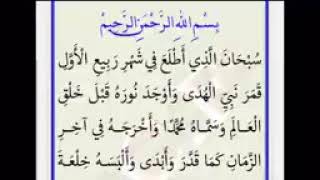 بِسْمِ اللهِ الرَّحْمٰنِ الرَّحِيْمِ
سُبْحَانَ الَّذِي أَطْلَعَ فِي شَهْرِ رَبِيعِ الْأَوَّلِ
قَمَرَ نَبِيِّ الْهُدَى وَأَوْجَدَ نُورَهُ قَبْلَ خَلْقِ
الْعَالَمِ وَسَمَّاهُ مُحَمَّدًا وَأَخْرَجَهُ فِي آخِرِ
الزَّمَانِ كَمَا قَدَّرَ وَأَبْدَى وَأَلْبَسَهُ خِلْعَةَ